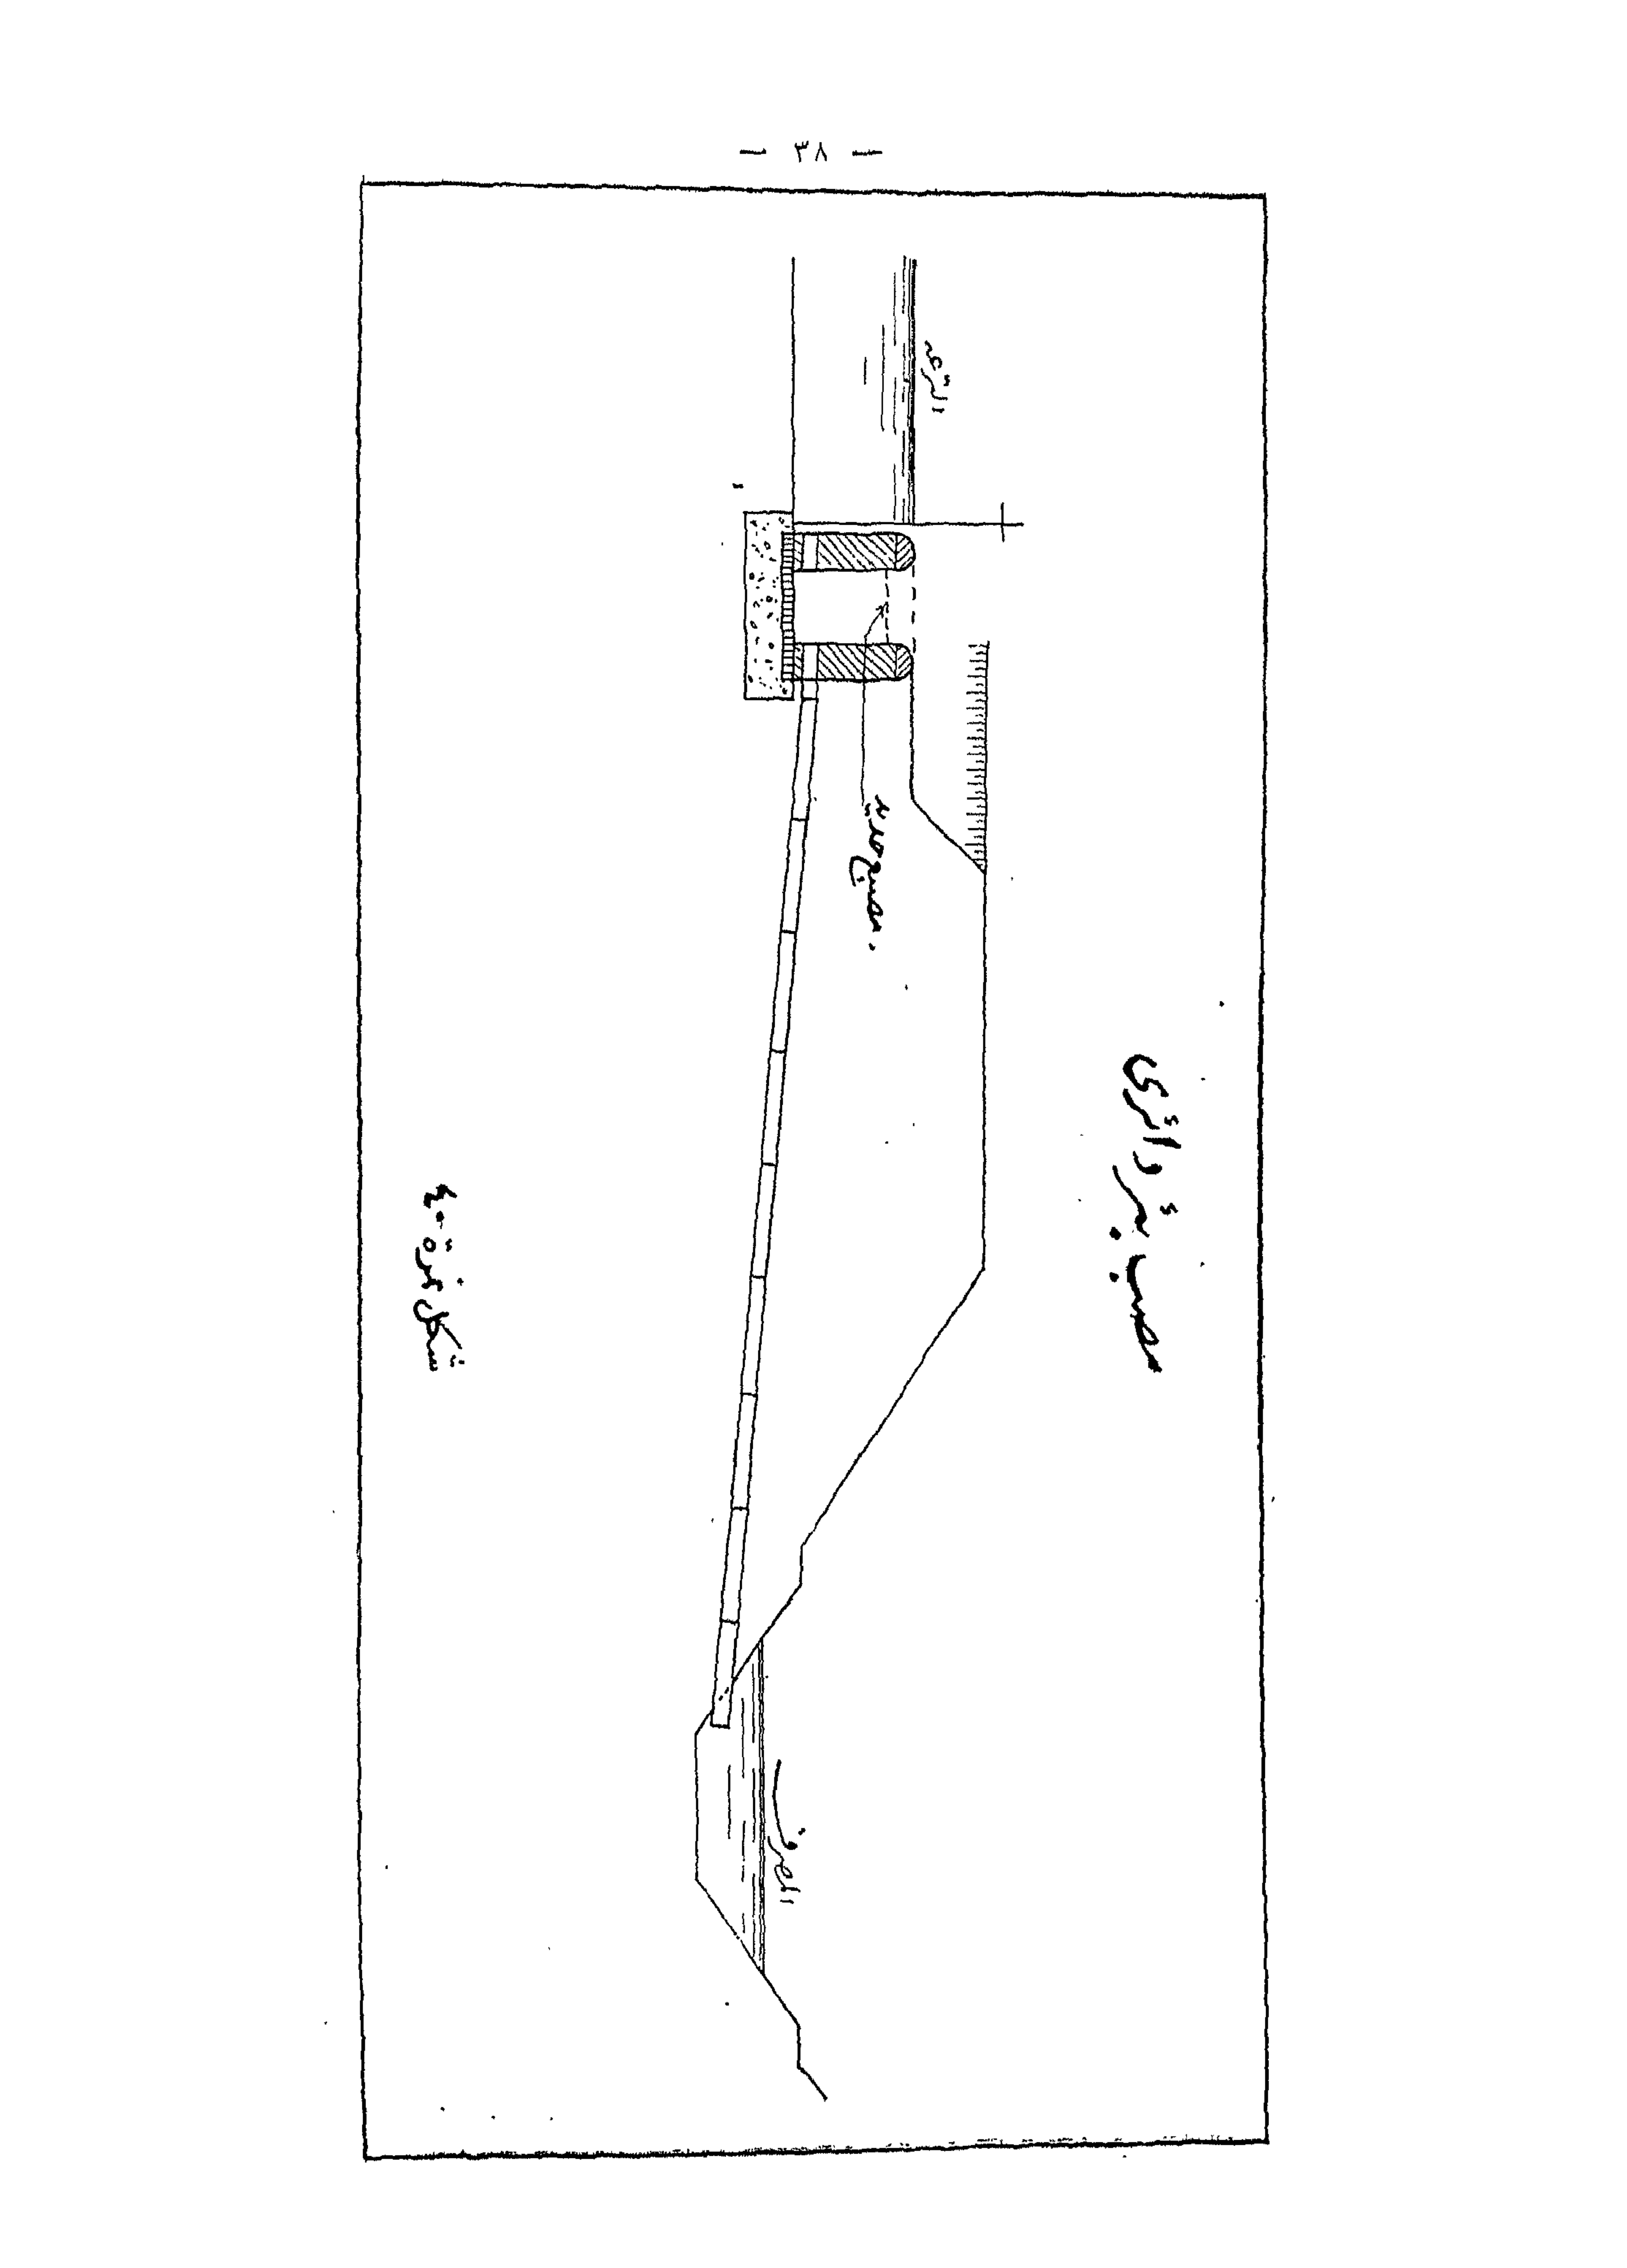 — ٣٨ —
مصب بئر دائرى
الترعه
مصبع حديد
المصرف
شكل نمرة ٤٠